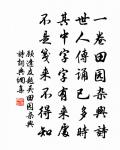 一卷田园杂兴诗
世人传诵已多时
其中字字有来处
不是笺来不得知
顾逢友题吴田园杂兴
诗词典网集